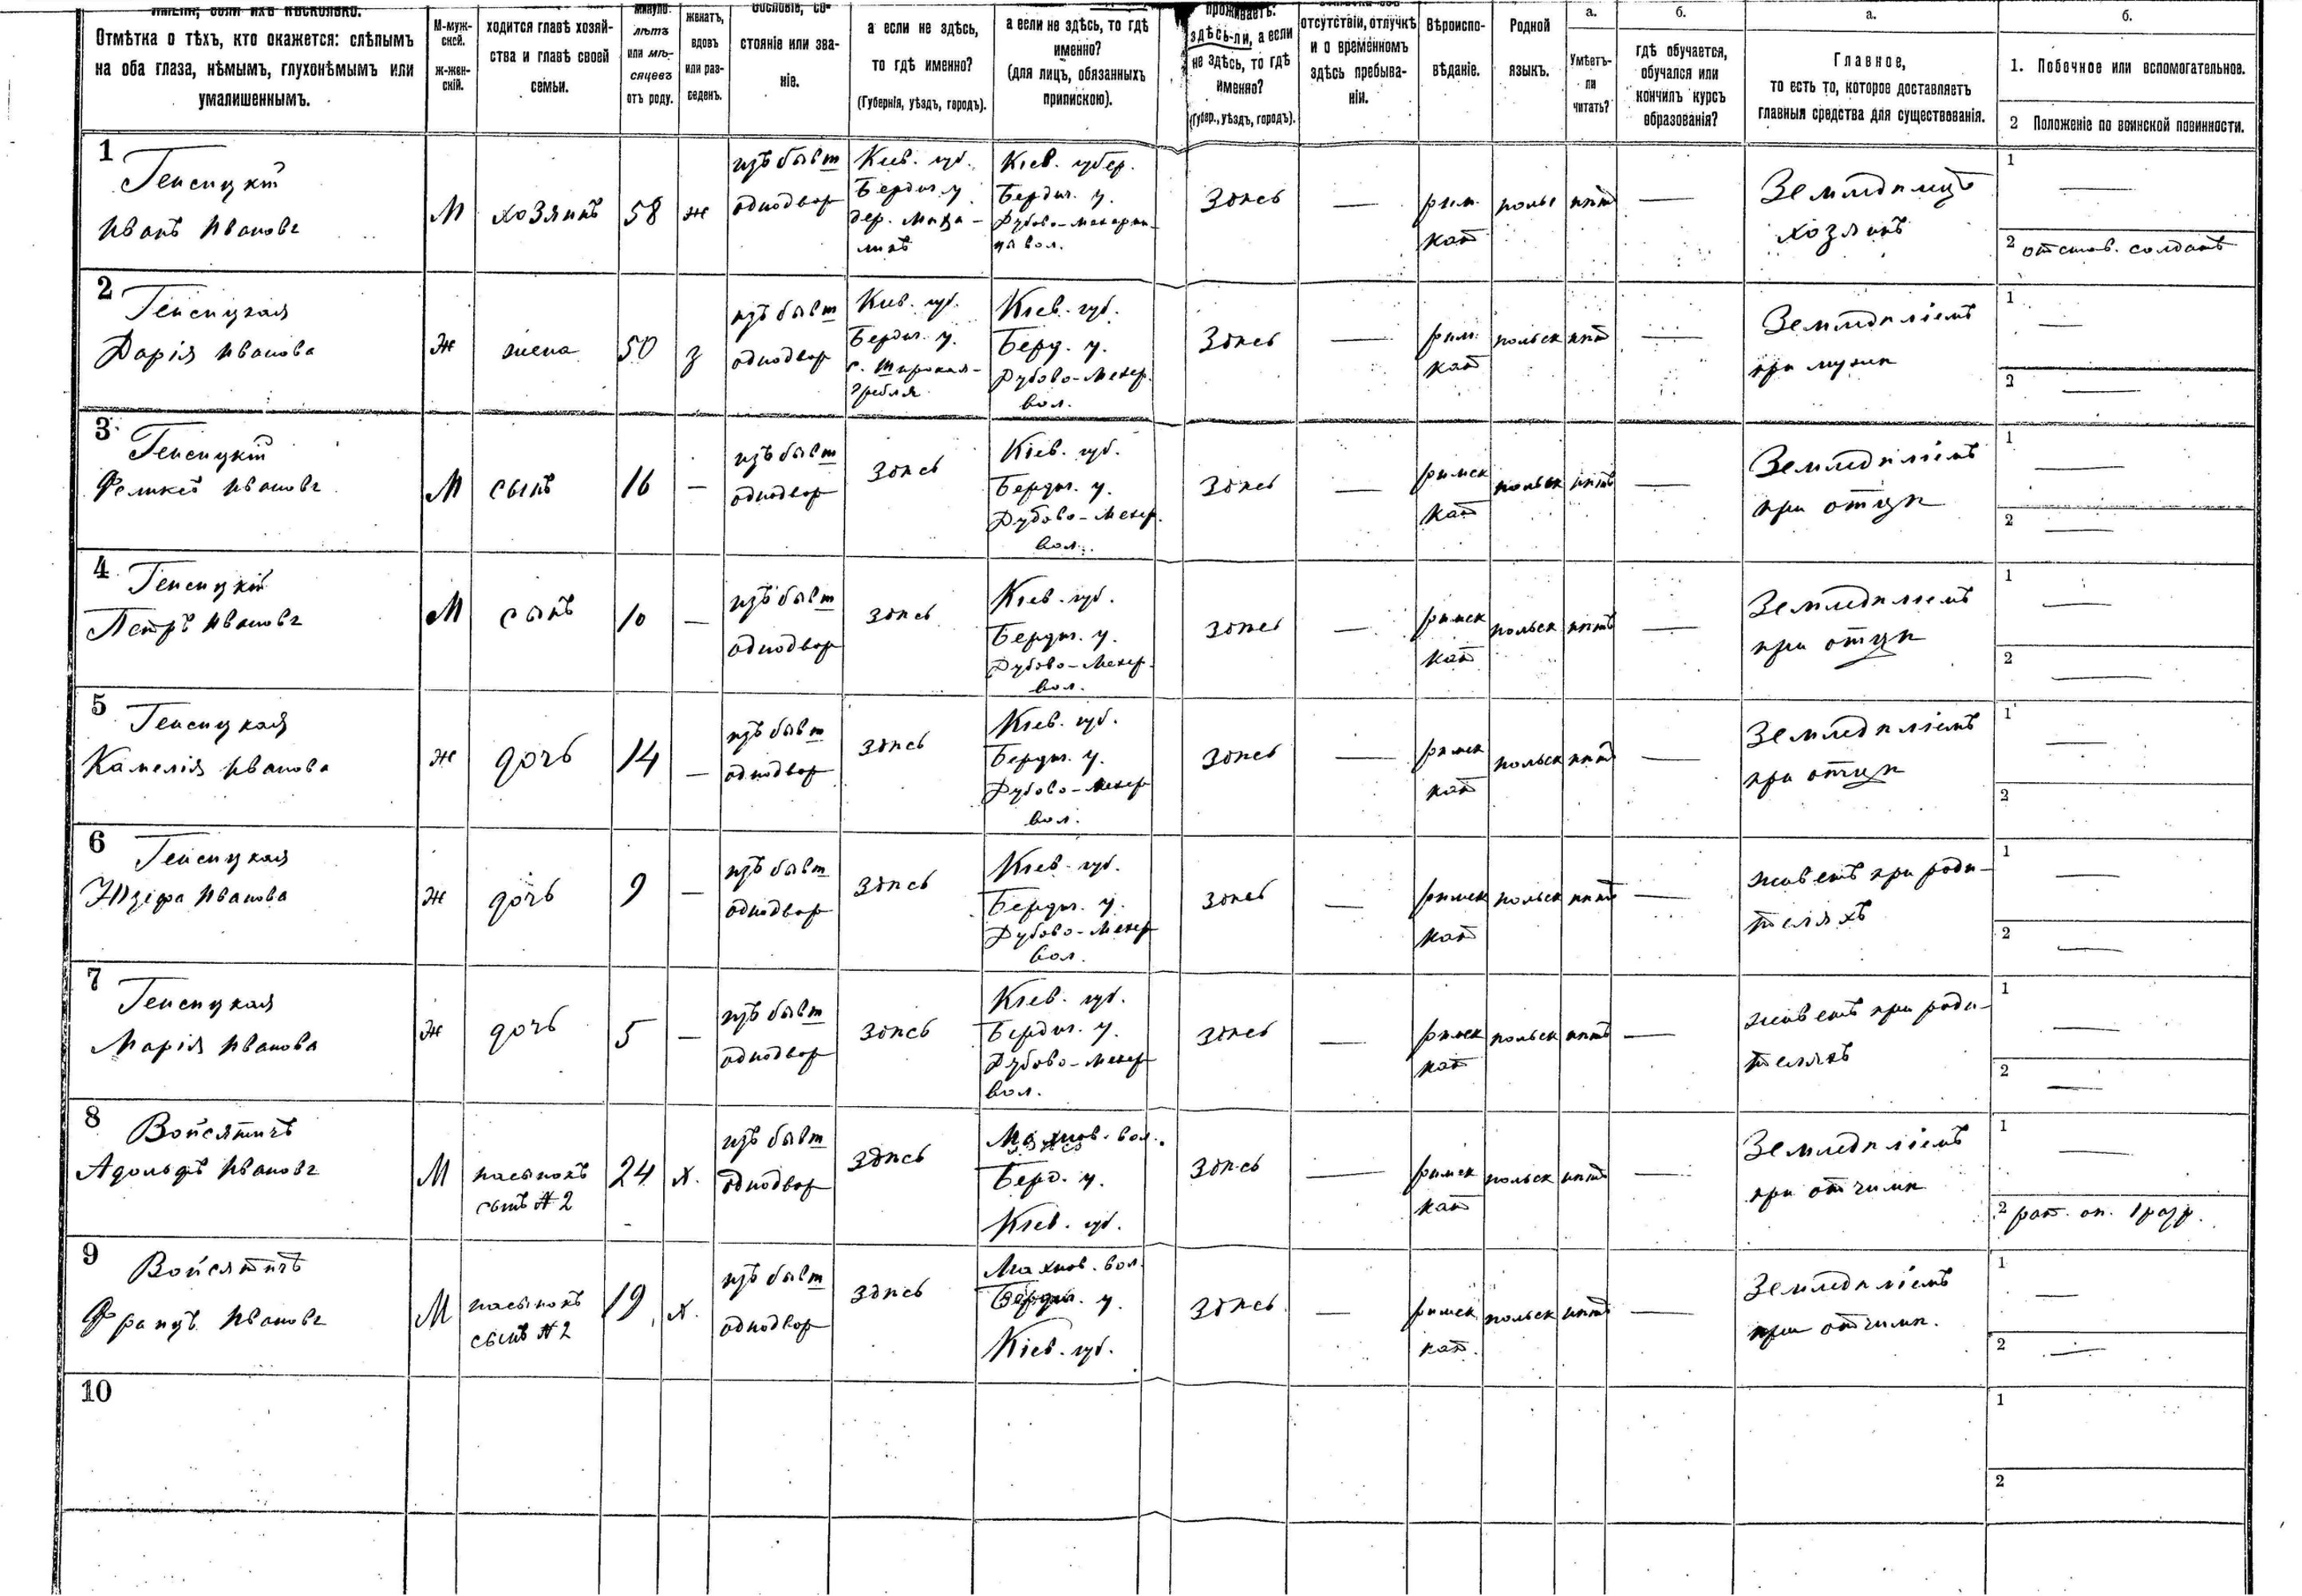 имени, если ихъ нѣсколько.
Отмѣтка о тѣхъ, кто окажется: слѣпымъ
на оба глаза, нѣмымъ, глухонѣмымъ или
умалишеннымъ.
М-муж-
ской.
ж-жен-
скій.
ходится главѣ хозяй-
ства и главѣ своей
семьи.
минуло
лѣтъ
или мѣ-
сяцевъ
отъ роду.
женатъ,
вдовъ
или раз-
веденъ.
Сословіе, со-
стояніе или зва-
ніе.
а если не здѣсь,
то гдѣ именно?
(Губернія, уѣздъ, городъ).
а если не здѣсь, то гдѣ
именно?
(для лицъ, обязанныхъ
припискою).
проживаетъ:
здѣсь-ли, а если
не здѣсь, то гдѣ
именно?
(Губер., уѣздъ, городъ).
отсутствіи, отлучкѣ
и о временномъ
здѣсь пребыва-
ніи.
Вѣроиспо-
вѣданіе.
Родной
языкъ.
а.
Умѣетъ-
ли
читать?
б.
гдѣ обучается,
обучался или
кончилъ курсъ
образованія?
а.
Главное,
то есть то, которое доставляетъ
главныя средства для существованія.
б.
1. Побочное или вспомогательное.
2 Положеніе по воинской повинности.
1
Генсицкій
Иванъ Ивановъ
М
хозяинъ
58
ж
изъ бывш
однодвор
Кіев. губ.
Бердич. у.
дер.
Кіев. губер.
Бердич. у.
Дубово-Макарин-
ця вол.
Здѣсь
—
рим.
кат
польс
нѣтъ
—
Земледѣлецъ
хозяинъ
1 —
2 отстав. солдатъ
2
Генсицкая
Дарія Иванова
Ж
жена
50
з
изъ бывш
однодвор
Кіев. губ.
Бердич. у.
с. Широкая-
Гребля
Кіев. губ.
Берд. у.
Дубово-Макар.
вол.
Здѣсь
—
рим.
кат
польск
нѣтъ
—
Земледѣліемъ
при мужѣ
1 —
2 —
3
Генсицкій
Феликсъ Ивановъ
М
сынъ
16
—
изъ бывш
однодвор
здѣсь
Кіев. губ.
Бердич. у.
Дубово-Макар.
вол.
Здѣсь
—
римск
кат
польск
нѣтъ
—
Земледѣліемъ
при отцѣ
1 —
2 —
4
Генсицкій
Петръ Ивановъ
М
сынъ
10
—
изъ бывш
однодвор
здѣсь
Кіев. губ.
Бердич. у.
Дубово-Макар.
вол.
здѣсь
—
римск
кат
польск
нѣтъ
—
Земледѣліемъ
при отцѣ
1 —
2 —
5
Генсицкая
Камелія Иванова
Ж
дочь
14
—
изъ бывш
однодвор
здѣсь
Кіев. губ.
Бердич. у.
Дубово-Макар
вол.
здѣсь
—
римск
кат
польск
нѣтъ
—
Земледѣліемъ
при отцѣ
1 —
2 —
6
Генсицкая
Юзефа Иванова
Ж
дочь
9
—
изъ бывш
однодвор
здѣсь
Кіев. губ.
Бердич. у.
Дубово-Макар
вол.
здѣсь
—
римск
кат
польск
нѣтъ
—
живетъ при роди-
теляхъ
1 —
2 —
7
Генсицкая
Марія Иванова
Ж
дочь
5
—
изъ бывш
однодвор
здѣсь
Кіев. губ.
Бердич. у.
Дубово-Макар
вол.
здѣсь
—
римск
кат
польск
нѣтъ
—
живетъ при роди-
теляхъ
1 —
2 —
8
Войсятичъ
Адольфъ Ивановъ
М
пасынокъ
сынъ №2
24
х.
изъ бывш
однодвор
здѣсь
Махнов. вол.
Берд. у.
Кіев. губ.
здѣсь
—
римск
кат
польск
нѣтъ
—
Земледѣліемъ
при отчимѣ
1 —
2 рат. оп. 1 разр.
9
Войсятичъ
Францъ Ивановъ
М
пасынокъ
сынъ №2
19
х.
изъ бывш
однодвор
здѣсь
Махнов. вол.
Бердич. у.
Кіев. губ.
здѣсь
—
римск
кат.
польск
нѣтъ
—
Земледѣліемъ
при отчимѣ.
1 —
2 —
10
1
2